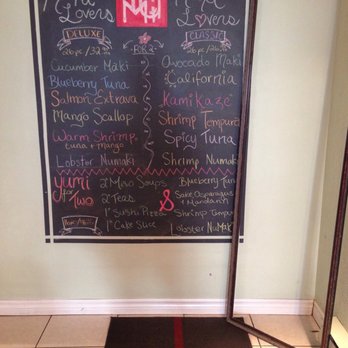 Lovers
Lovers
DELUXE
CLASSIC
FOR 2
Cucumber Maki
Blueberry Tuna
Salmon Extrava
Mango Scallop
Warm Shrimp
tuna + Mango
Lobster Numaki
Avocado Maki
California
Kamikaze
Shrimp Tempura
Spicy Tuna
Shrimp Numaki
yumi
for
Two
2 Miso Soups
2 Teas
2" Sushi Pizza
1" Cake Slice
&
Blueberry Tuna
Sake Asparagus
+ Mandarin
Shrimp Tempura
Lobster NuMaki